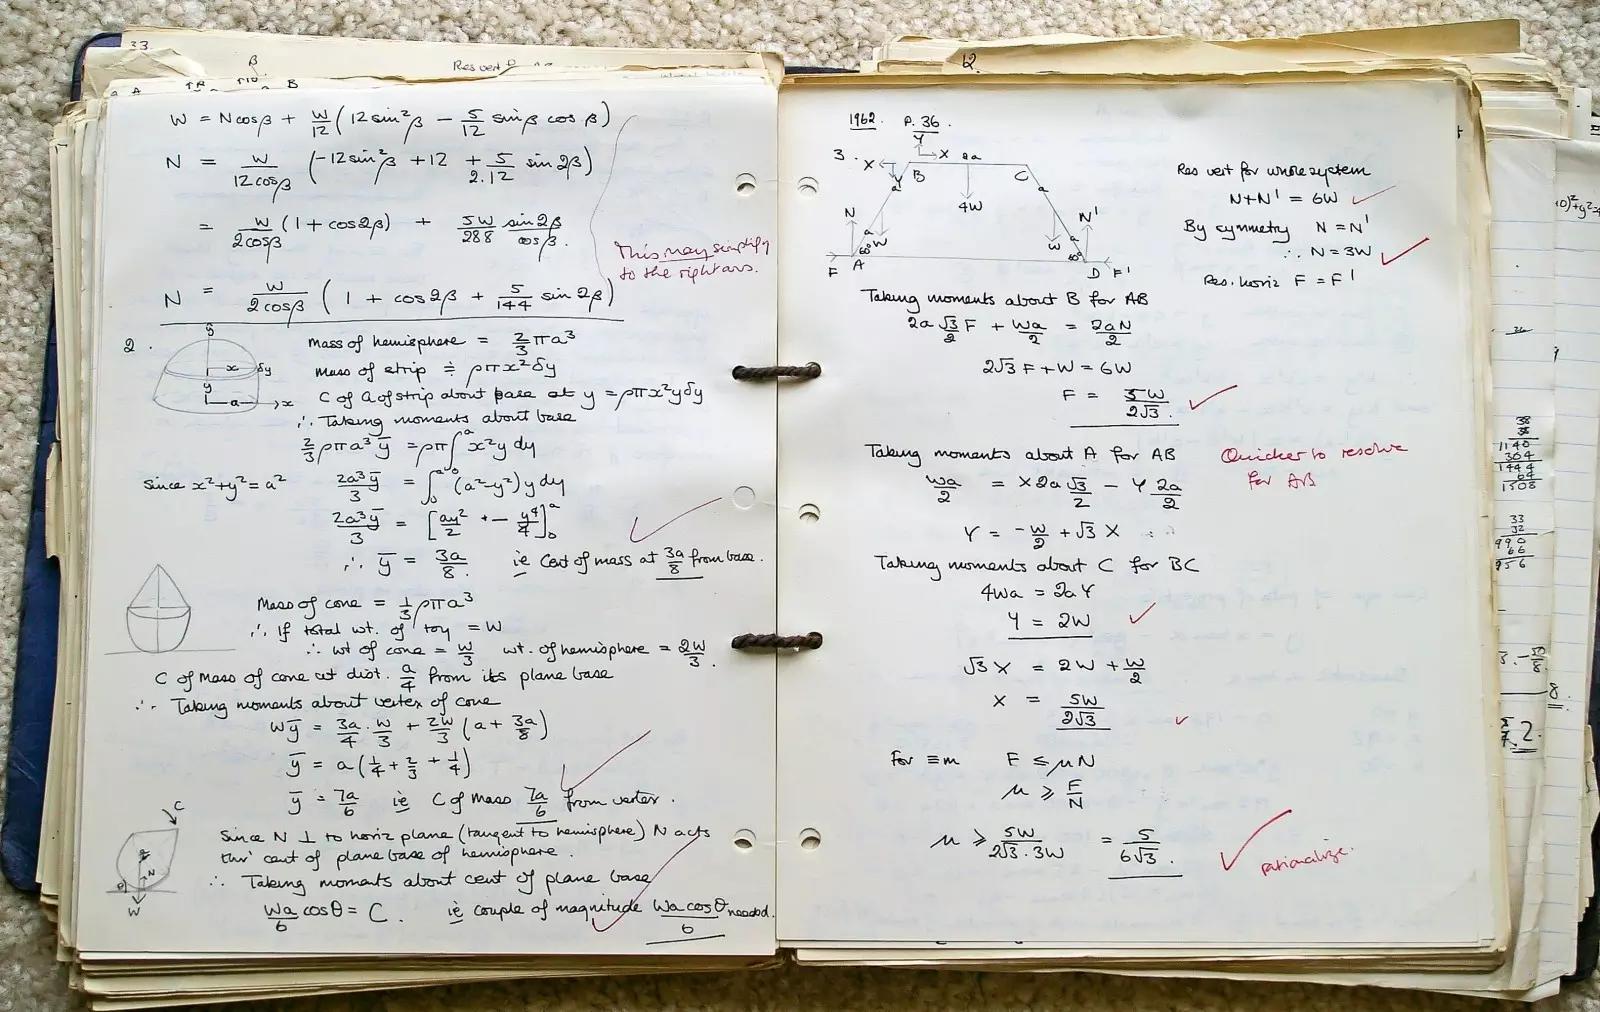 33.
Res vert
β
A
B
W = N cosβ + W/12 (12 sin²β − 5/12 sinβ cosβ)
N = W/12cosβ (−12 sin²β + 12 + 5/2.12 sin 2β)
= W/2cosβ (1 + cos2β) + 5W/288 sin2β/cosβ.
This may simplify
to the right ans.
N = W/2cosβ (1 + cos2β + 5/144 sin 2β)
2.
x
δy
y
a
x
Mass of hemisphere = 2/3 πa³
Mass of strip ≑ ρπx²δy
C of G of strip about base at y = ρπx²yδy
∴ Taking moments about base
2/3 ρπa³ȳ = ρπ∫₀ᵃ x²y dy
Since x²+y²=a² 2a³ȳ/3 = ∫₀ᵃ (a²−y²) y dy
2a³ȳ/3 = [ay²/2 − y⁴/4]₀ᵃ
∴ ȳ = 3a/8. ie Cent of mass at 3a/8 from base.
Mass of cone = 1/3 ρπa³
∴ If total wt. of toy = W
∴ wt of cone = W/3 wt. of hemisphere = 2W/3.
C of Mass of cone at dist. a/4 from its plane base
∴ Taking moments about vertex of cone
Wȳ = 3a/4 . W/3 + 2W/3 (a + 3a/8)
ȳ = a(1/4 + 2/3 + 1/4)
ȳ = 7a/6 ie C of Mass 7a/6 from vertex.
C
N
W
Since N ⊥ to horiz plane (tangent to hemisphere) N acts
thr' cent of plane base of hemisphere.
∴ Taking moments about cent of plane base
Wa/6 cosθ = C. ie couple of magnitude Wa cosθ/6 needed.
12.
1962. P. 36.
3.
Y
X
X
2a
B
Y
C
a
a
4W
N
N'
a
a
W
W
60°
60°
F
A
D
F'
Res vert for whole system
N+N' = 6W
By symmetry N = N'
∴ N = 3W
Res. horiz F = F'
Taking moments about B for AB
2a √3/2 F + Wa/2 = 2aN/2
2√3 F + W = 6W
F = 5W/2√3.
Taking moments about A for AB
Quicker to resolve
for AB
Wa/2 = X 2a √3/2 − Y 2a/2
Y = −W/2 + √3 X
Taking moments about C for BC
4Wa = 2aY
Y = 2W
√3 X = 2W + W/2
X = 5W/2√3
For ≡m F ≤ μN
μ ≥ F/N
μ ≥ 5W/2√3.3W = 5/6√3.
rationalize.
38
38
1140
304
1444
64
1508
33
32
990
66
956
8.
2.